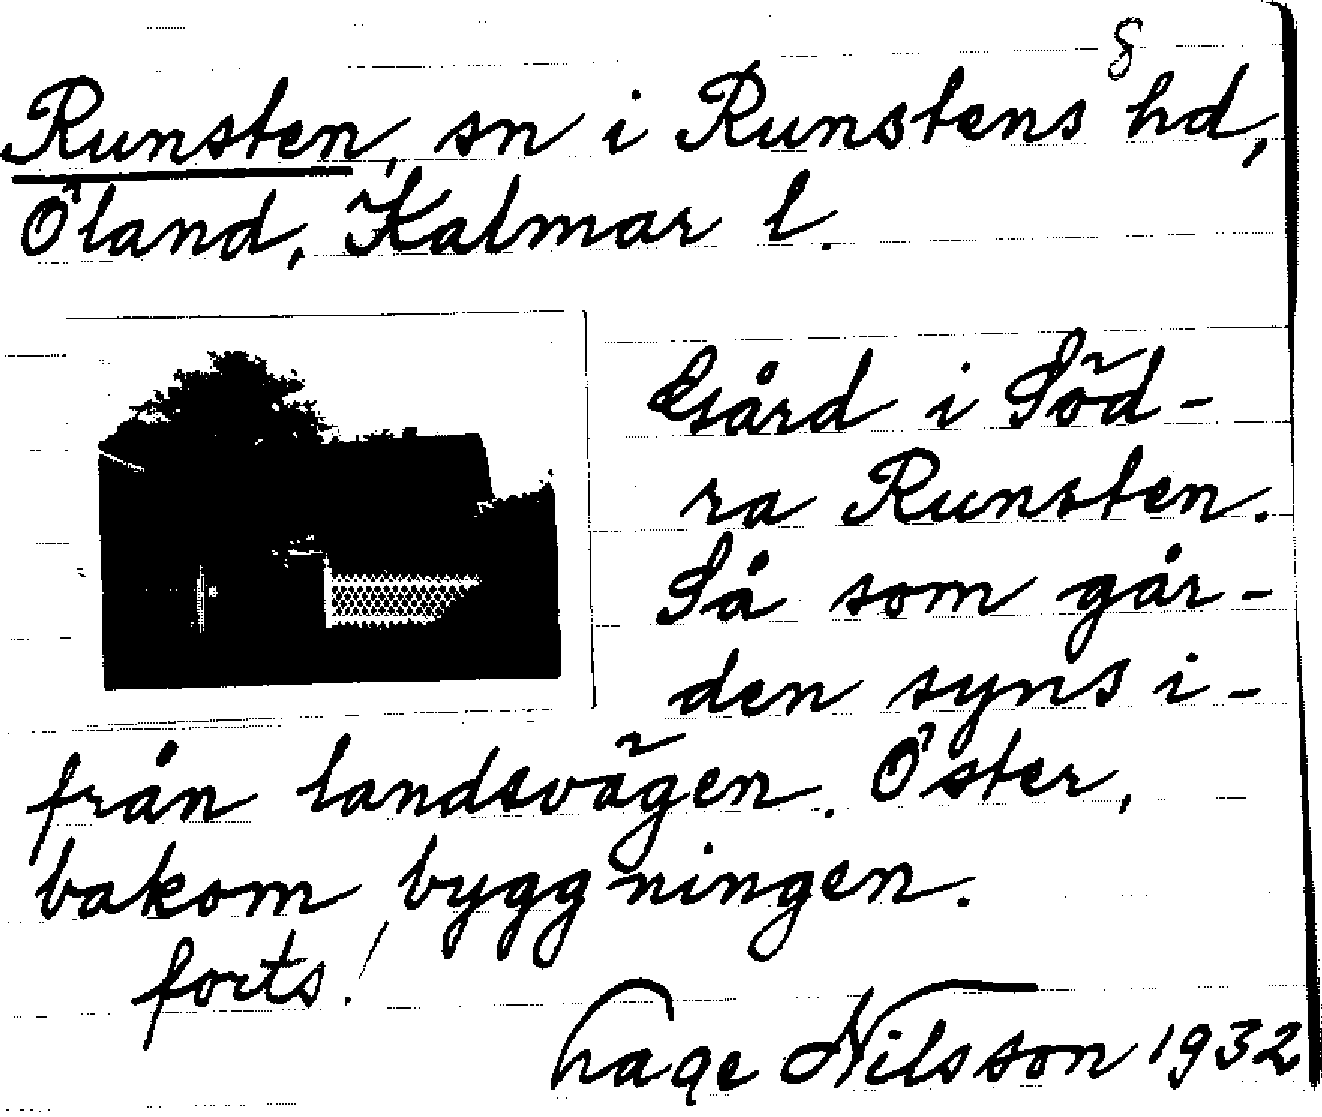 8
Runsten, sn i Runstens hd,
Öland, Kalmar l.
Gård i Söd-
ra Runsten.
Så som går-
den syns i-
från landsvägen. Öster,
bakom byggningen.
forts!
Nilsson 1932